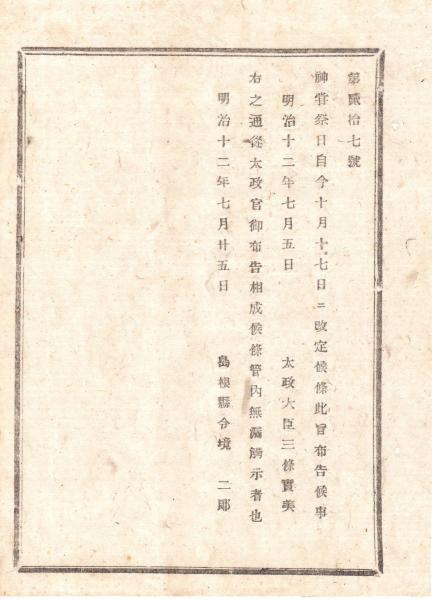 第貳拾七號
神嘗祭日自今十月十七日ニ改定候條此旨布告候事
明治十二年七月五日　太政大臣三條實美
右之通從太政官御布告相成候條管內無漏觸示者也
明治十二年七月廿五日　島根縣令境　二郎